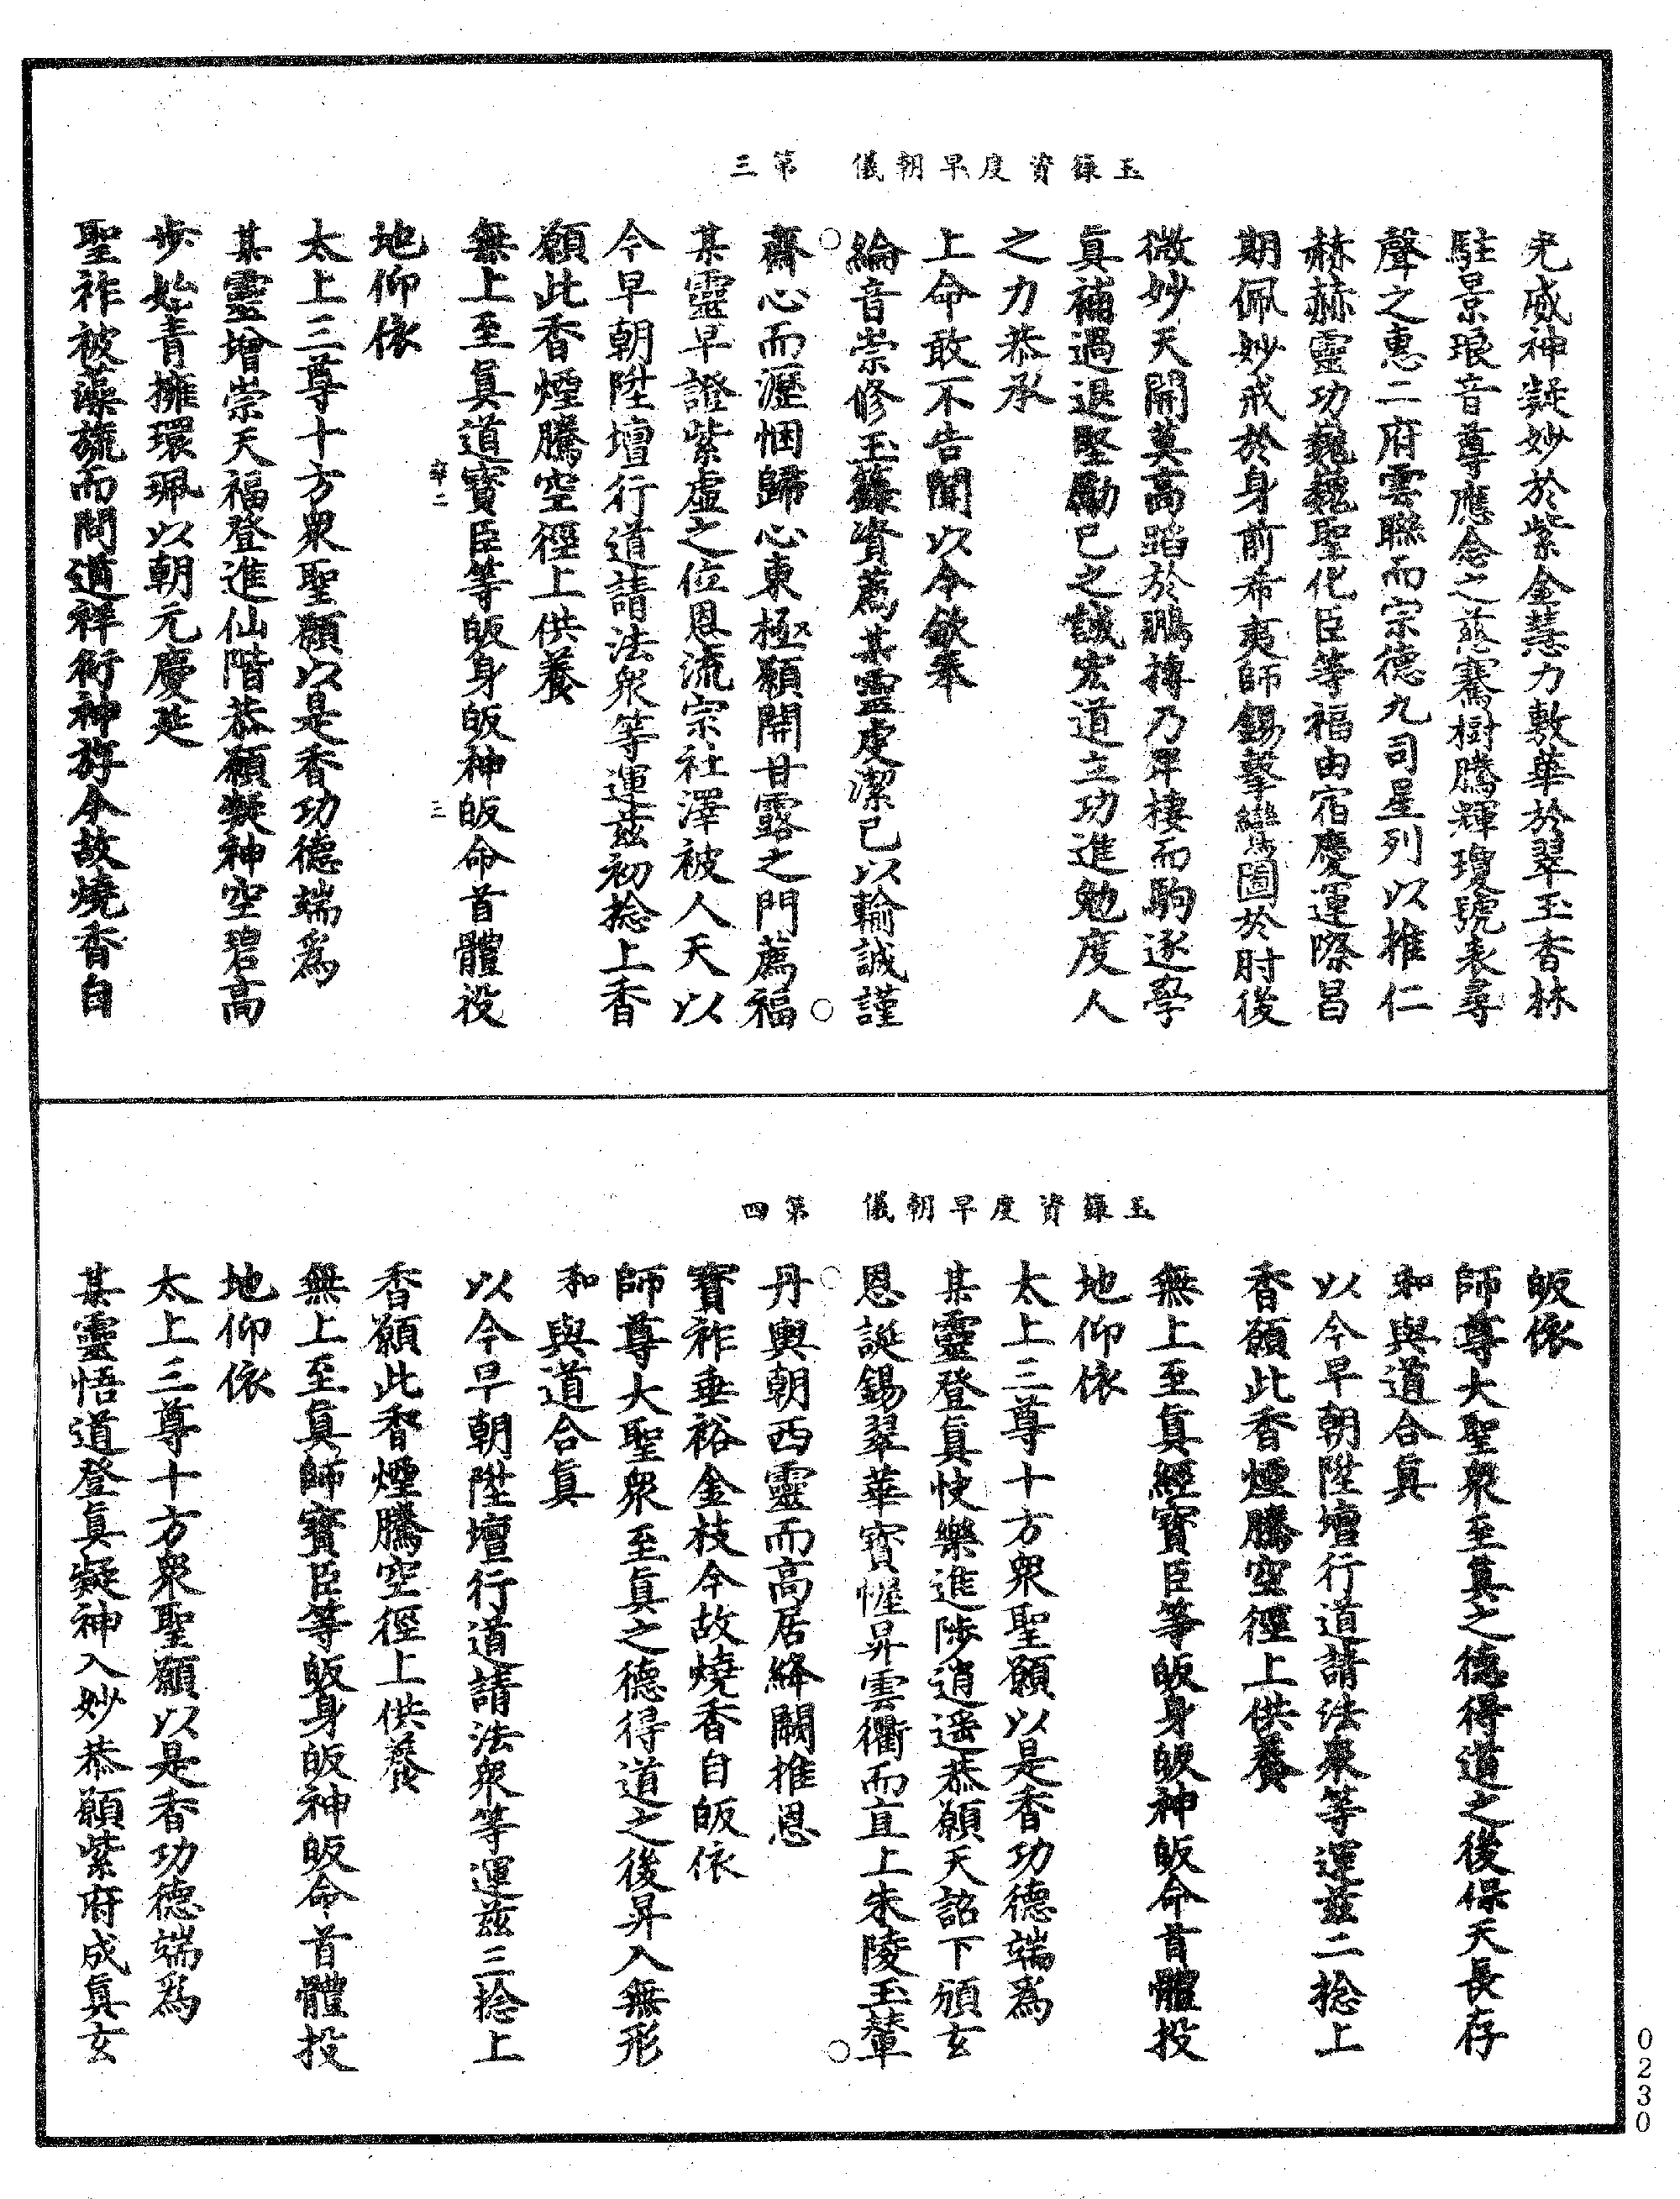 玉籙資度早朝儀　第三
光威神凝妙於紫金慧力敷華於翠玉香林
駐景琅音尊應念之慈騫樹騰輝瓊號表尋
聲之惠二府雲聯而宗德九司星列以推仁
赫赫靈功巍巍聖化臣等福由宿慶運際昌
期佩妙戒於身前希夷師錫擊蠻圖於肘後
微妙天開莫高蹈於鵬摶乃卑棲而駒逐學
眞補過退堅勵己之誠宏道立功進勉度人
之力恭承
上命敢不告聞以今欽奉
綸音崇修玉籙資薦某靈虔潔己以輸誠謹
齋心而瀝悃歸心東極願開甘露之門薦福
某靈早證紫虛之位恩流宗社澤被人天以
今早朝陞壇行道請法衆等運茲初捻上香
願此香煙騰空徑上供養
無上至眞道寶臣等皈身皈神皈命首體投
地仰依
太上三尊十方衆聖願以是香功德端爲
某靈增崇天福登進仙階恭願凝神空碧高
步始青擁環珮以朝元慶延
聖祚被藻旒而問道祥衍神斿今故燒香自
二　三
玉籙資度早朝儀　第四
皈依
師尊大聖衆至眞之德得道之後保天長存
和與道合眞
以今早朝陞壇行道請法衆等運茲二捻上
香願此香煙騰空徑上供養
無上至眞經寶臣等皈身皈神皈命首體投
地仰依
太上三尊十方衆聖願以是香功德端爲
某靈登眞快樂進陟逍遥恭願天詔下頒玄
恩誕錫翠華寶幄昇雲衢而直上朱陵玉輦
丹輿朝西靈而高居絳闕推恩
寶祚垂裕金枝今故燒香自皈依
師尊大聖衆至眞之德得道之後昇入無形
和與道合眞
以今早朝陞壇行道請法衆等運茲三捻上
香願此香煙騰空徑上供養
無上至眞師寶臣等皈身皈神皈命首體投
地仰依
太上三尊十方衆聖願以是香功德端爲
某靈悟道登眞凝神入妙恭願紫府成眞玄
0230